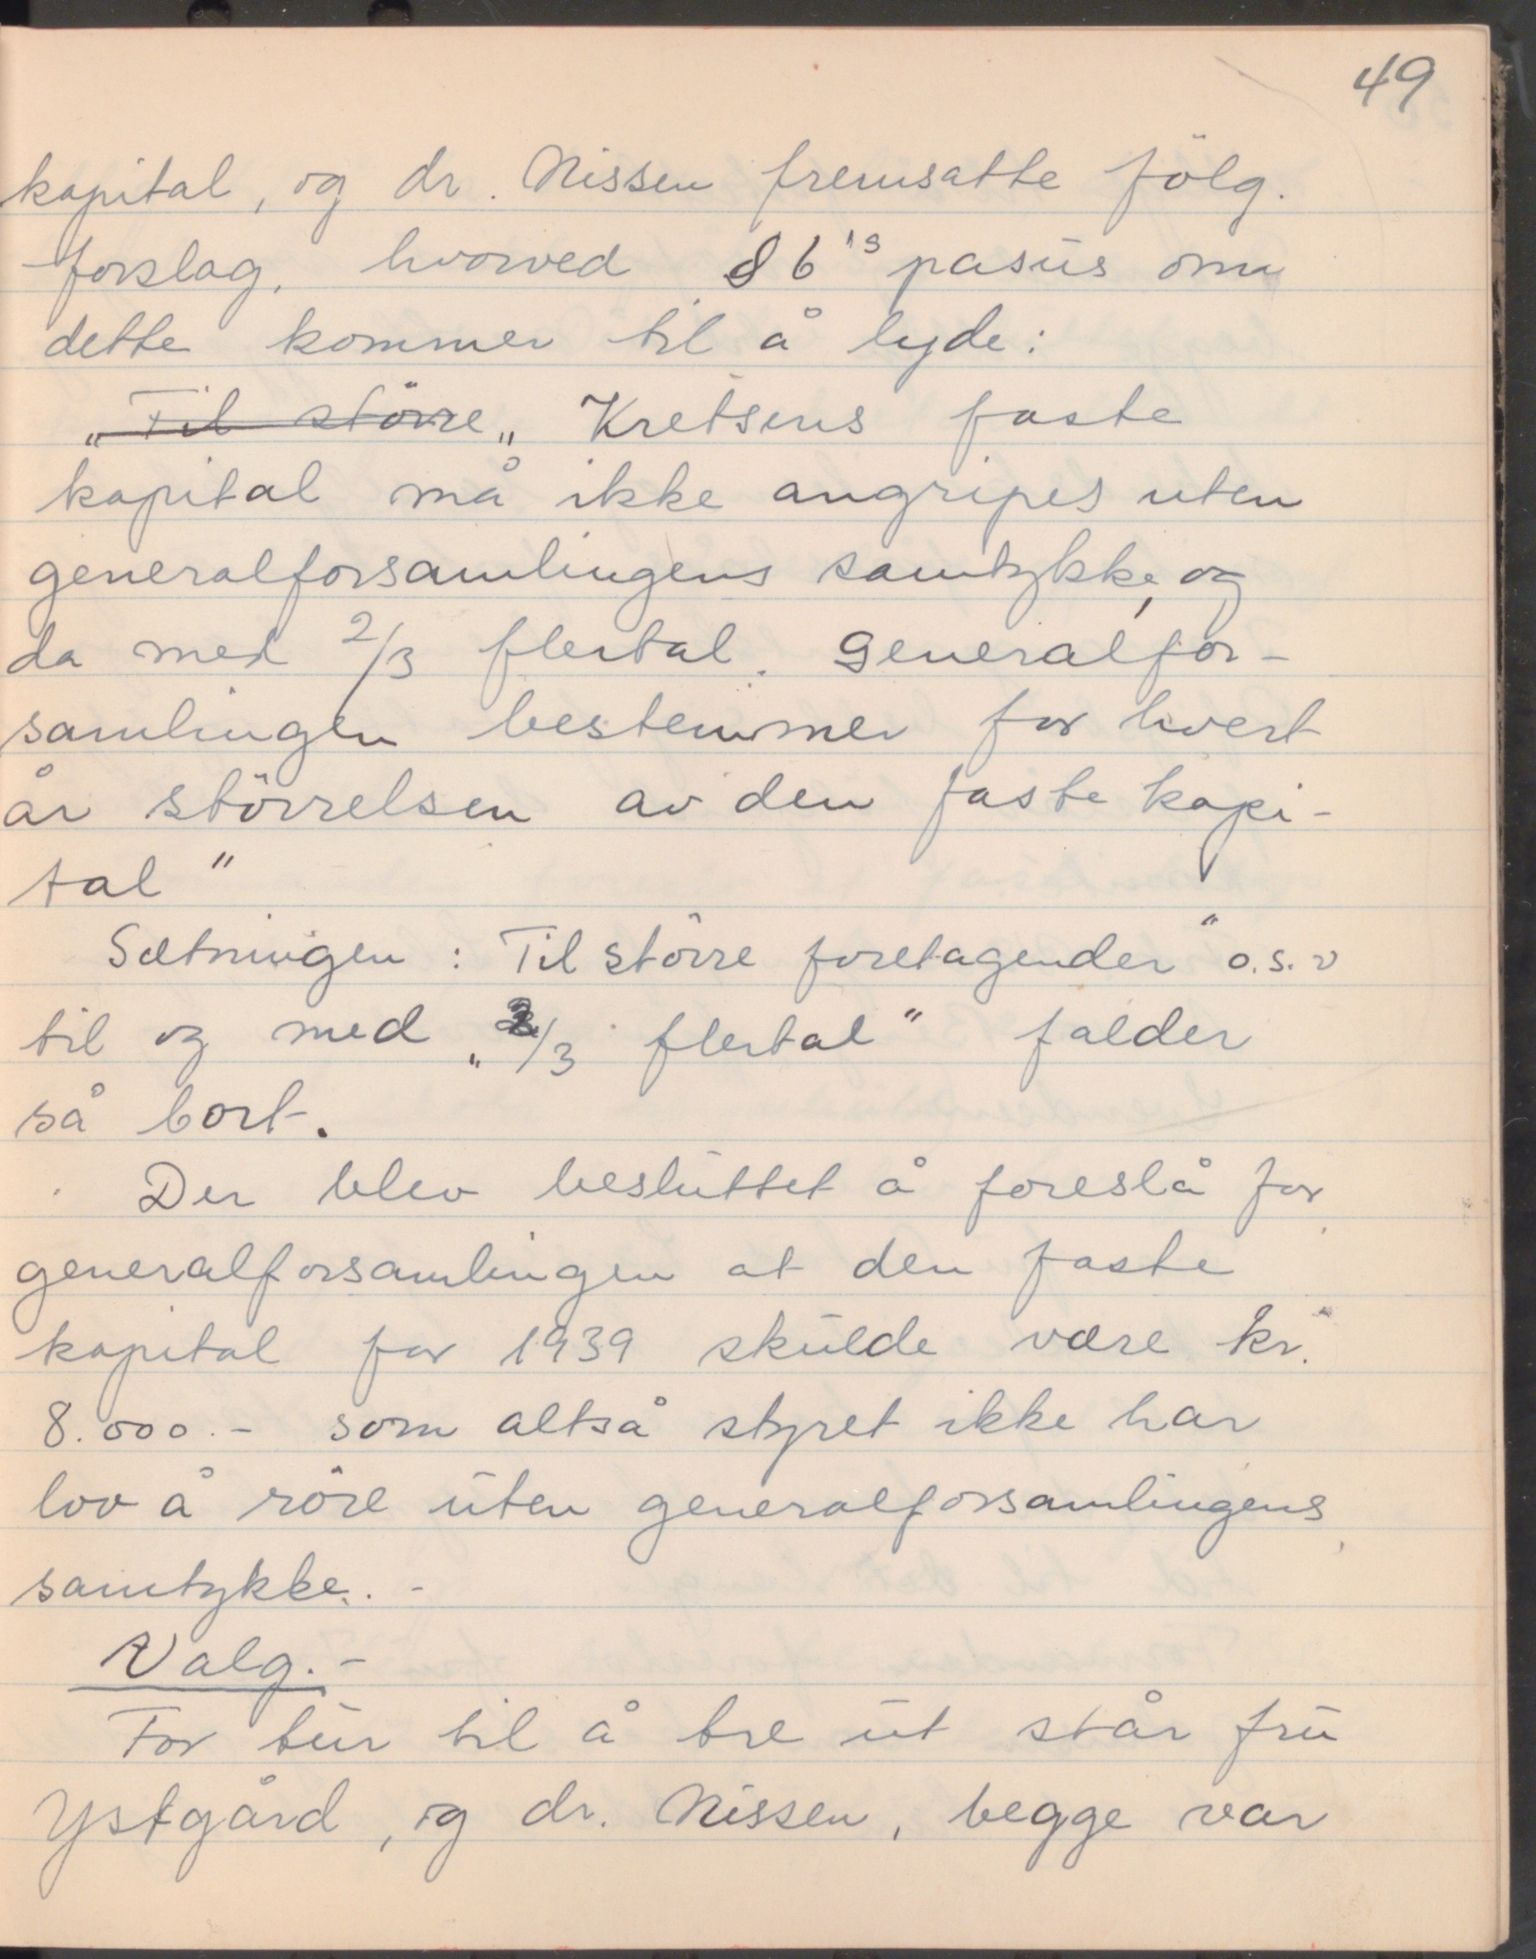 49
kapital, og dr. Nissen fremsatte følg.
forslag, hvorved § 6's pasus om
dette kommer til å lyde:
„Til större„ Kretsens faste
kapital må ikke angripes uten
generalforsamlingens samtykke, og
da med 2/3 flertal. Generalfor-
samlingen bestemmer for hvert
år störrelsen av den faste kapi-
tal"
Sætningen: Til större foretagender" o.s.v
til og med „2/3 flertal" falder
så bort.
Der blev besluttet å foreslå for
generalforsamlingen at den faste
kapital for 1939 skulde være kr.
8.000.- som altså styret ikke har
lov å röre uten generalforsamlingens
samtykke. -
Valg. -
For tur til å tre ut står fru
Ystgård, og dr. Nissen, begge var